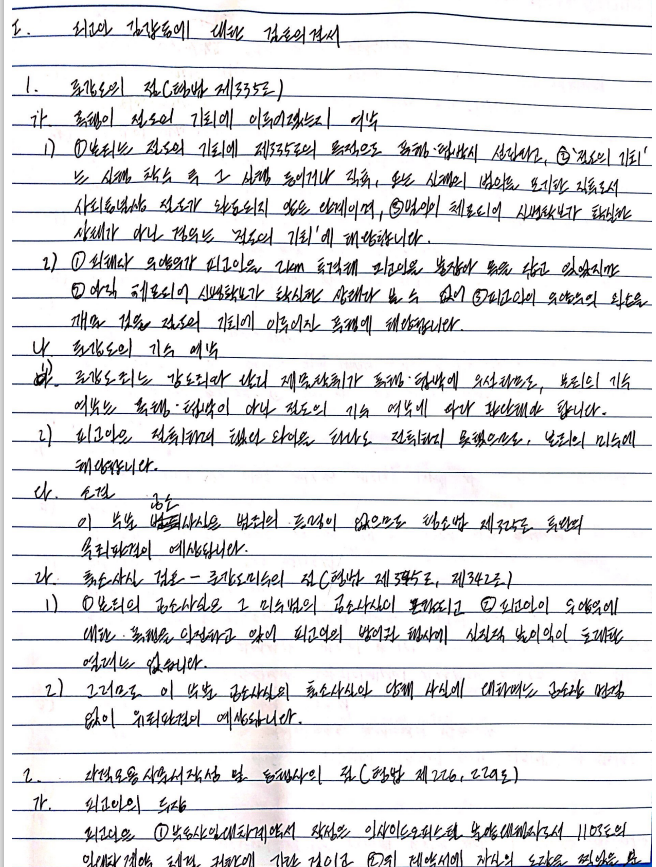 I. 피고인 김갑동에 대한 검토의견서
1. 준강도의 점(형법 제335조)
가. 폭행이 절도의 기회에 이루어졌는지 여부
1) ①본죄는 절도의 기회에 제335조의 목적으로 폭행·협박시 성립하고, ②'절도의 기회'
는 실행 착수 후 그 실행 중이거나 직후, 또는 실행의 범의를 포기한 직후로서
사회통념상 절도가 완료되지 않은 단계이며, ③범인이 체포되어 신병확보가 확실한
상태가 아닌 경우는 '절도의 기회'에 해당합니다.
2) ① 피해자 우영우가 피고인을 추격해 피고인을 붙잡아 몸을 잡고 있었지만
② 아직 체포되어 신병확보가 확실한 상태라 볼 수 없어 ③피고인이 우영우의
개문 것은 절도의 기회에 이루어진 폭행에 해당합니다.
나. 준강도의 기수 여부
1) 준강도죄는 강도죄와 달리 재물탈취가 폭행·협박에 우선하므로, 본죄의 기수
여부는 폭행·협박이 아닌 절도의 기수 여부에 따라 판단해야 합니다.
2) 피고인은 절취하려 했던 와인을 하나도 절취하지 못했으므로, 본죄의 미수에
해당합니다.
다. 소결
이 부분 공소사실은 범죄의 증명이 없으므로 형소법 제325조 후단의
무죄판결이 예상됩니다.
라. 축소사실 검토 - 준강도미수의 점(형법 제335조, 제342조)
1) ①본죄의 공소사실은 그 미수범의 공소사실이 포함되고 ②피고인이 우영우에
대한 폭행을 인정하고 있어 피고인의 방어권 행사에 실질적 불이익이 초래할
염려는 없습니다.
2) 그러므로 이 부분 공소사실의 축소사실인 단계 사실에 대하여는 공소장 변경
없이 유죄판결이 예상됩니다.
2. 자격모용사문서작성 및 동행사의 점(형법 제226, 229조)
가. 피고인의 주장
피고인은 ①부동산임대차계약서 작성은 인사이드오피스텔 분양대행자로서 1103호의